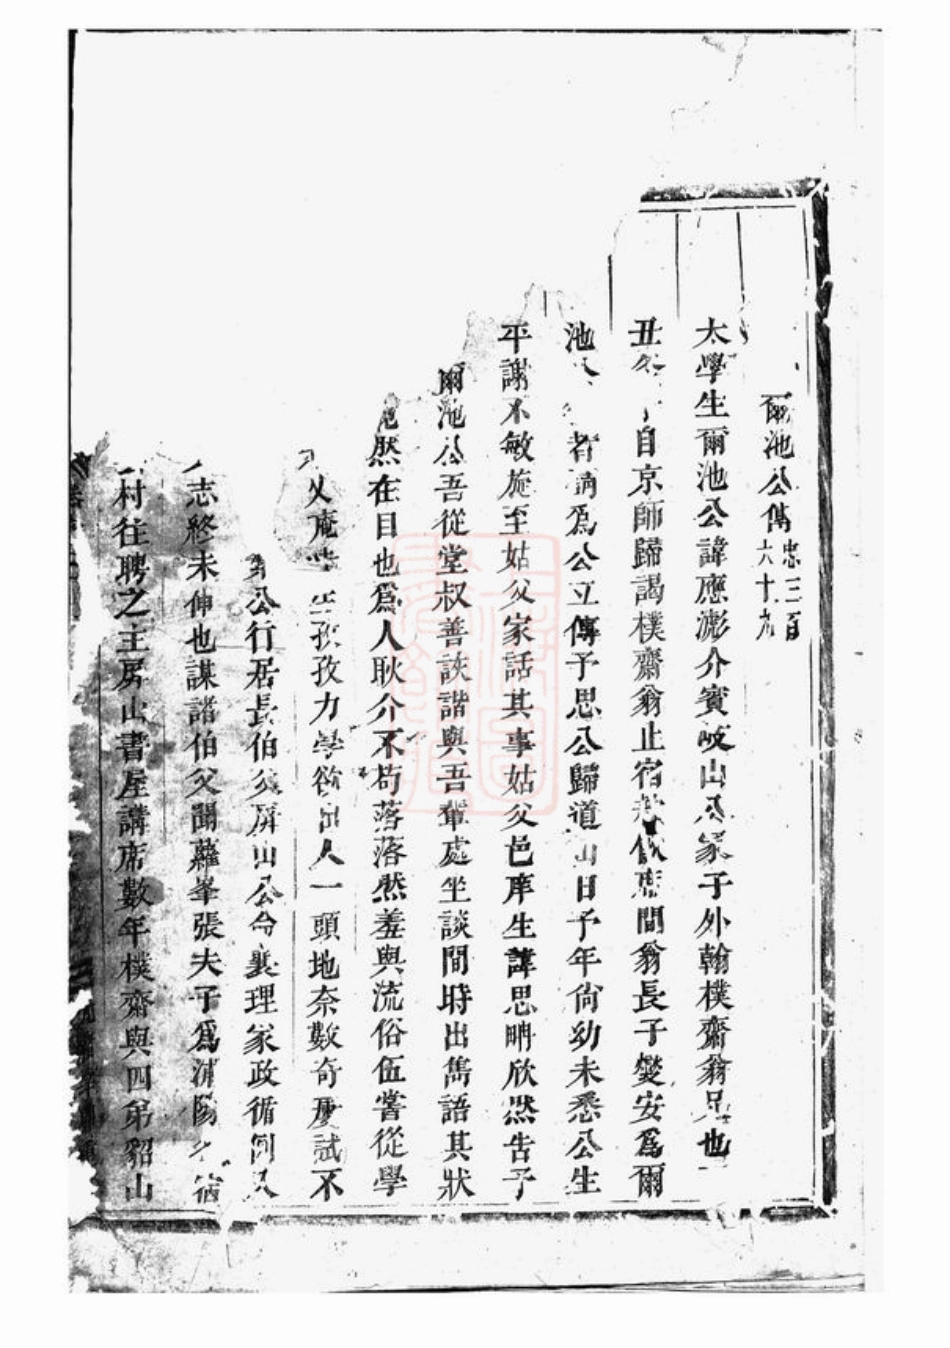 爾池公傳忠三百六十九
太學生爾池公諱應澎介賓岐山公冢子外翰樸齋翁兄也
丑冬自京師歸謁樸齋翁止宿飲席間翁長子燮安爲爾
池 者請爲公立傳予思公歸道山日予年尙幼未悉公生
平謝不敏旋至姑父家話其事姑父邑庠生諱思聃欣然告予
爾池公吾從堂叔善詼諧與吾輩處坐談間時出雋語其狀
宛然在目也爲人耿介不苟落落然羞與流俗伍嘗從學
庵 孜孜力學欲出人一頭地奈數奇屢試不
公行居長伯父屏山公命襄理家政循例入
志終未伸也謀諸伯父聞蘿峯張夫子爲浦陽名宿
村往聘之主房山書屋講席數年樸齋與四弟貂山